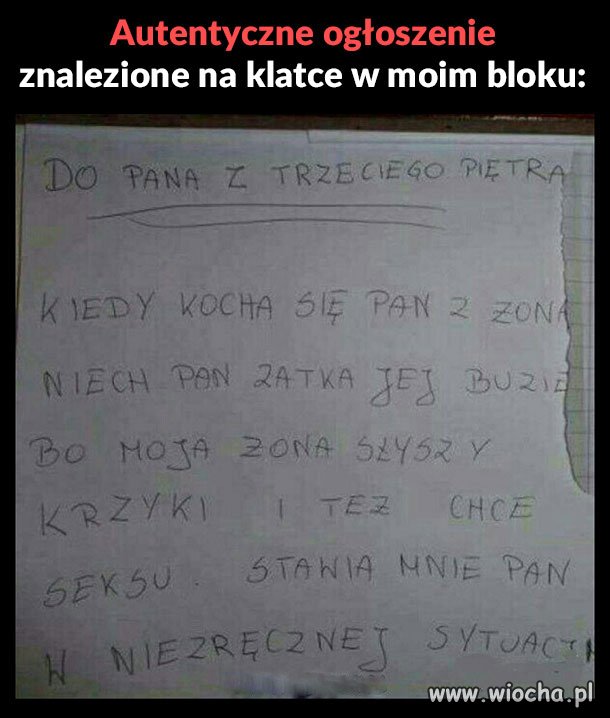 Autentyczne ogłoszenie
znalezione na klatce w moim bloku:
DO PANA Z TRZECIEGO PIĘTRA
KIEDY KOCHA SIĘ PAN Z ŻONĄ
NIECH PAN ZATKA JEJ BUZIE
BO MOJA ŻONA SŁYSZY
KRZYKI I TEŻ CHCE
SEKSU. STAWIA MNIE PAN
W NIEZRĘCZNEJ SYTUACJI
www.wiocha.pl